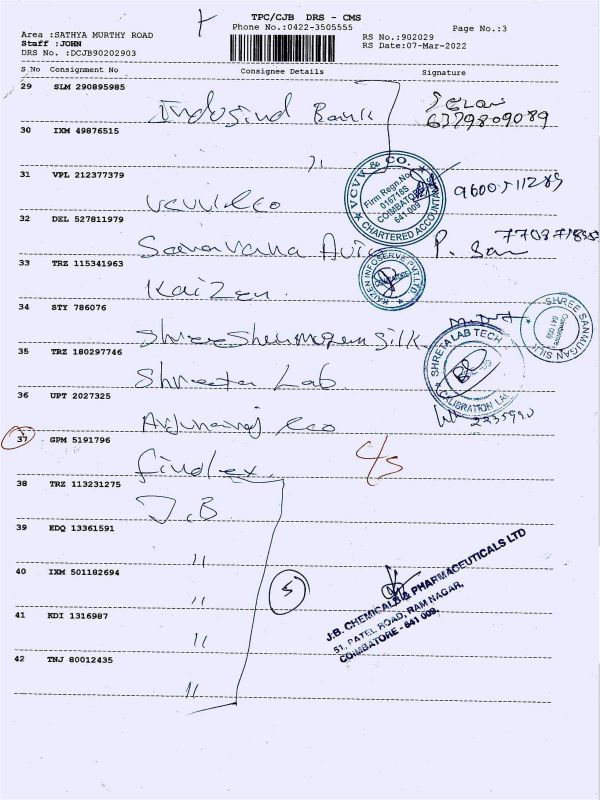 TPC/CJB DRS - CMS
Phone No.:0422-3505555 Page No.:3
Area :SATHYA MURTHY ROAD RS No.:902029
Staff :JOHN RS Date:07-Mar-2022
DRS No. :DCJB90202903
S No Consignment No Consignee Details Signature
29 SLM 290895985
Indusind Bank 6379809089
30 IXM 49876515
"
31 VPL 212377379
VCVW & CO.
Firm Regn.No
016718S
COIMBATORE
641 009
CHARTERED ACCOUNTANTS
32 DEL 527811979
Saravana
33 TRZ 115341963
Kaizen
KAIZEN INFOSERVE PVT LTD
34 STY 786076
Shree Shanmugan Silk
SHREE SANMUGAN SILK
Coimbatore
35 TRZ 180297746
Shreeta Lab
SHRETA LAB TECH
CALIBRATION LAB
36 UPT 2027325
2235990
37 GPM 5191796
Findex
38 TRZ 113231275
J.B
39 EDQ 13361591
"
40 IXM 501182694
" 5
J.B. CHEMICALS & PHARMACEUTICALS LTD
51, PATEL ROAD, RAM NAGAR,
COIMBATORE - 641 009.
41 KDI 1316987
"
42 TNJ 80012435
"